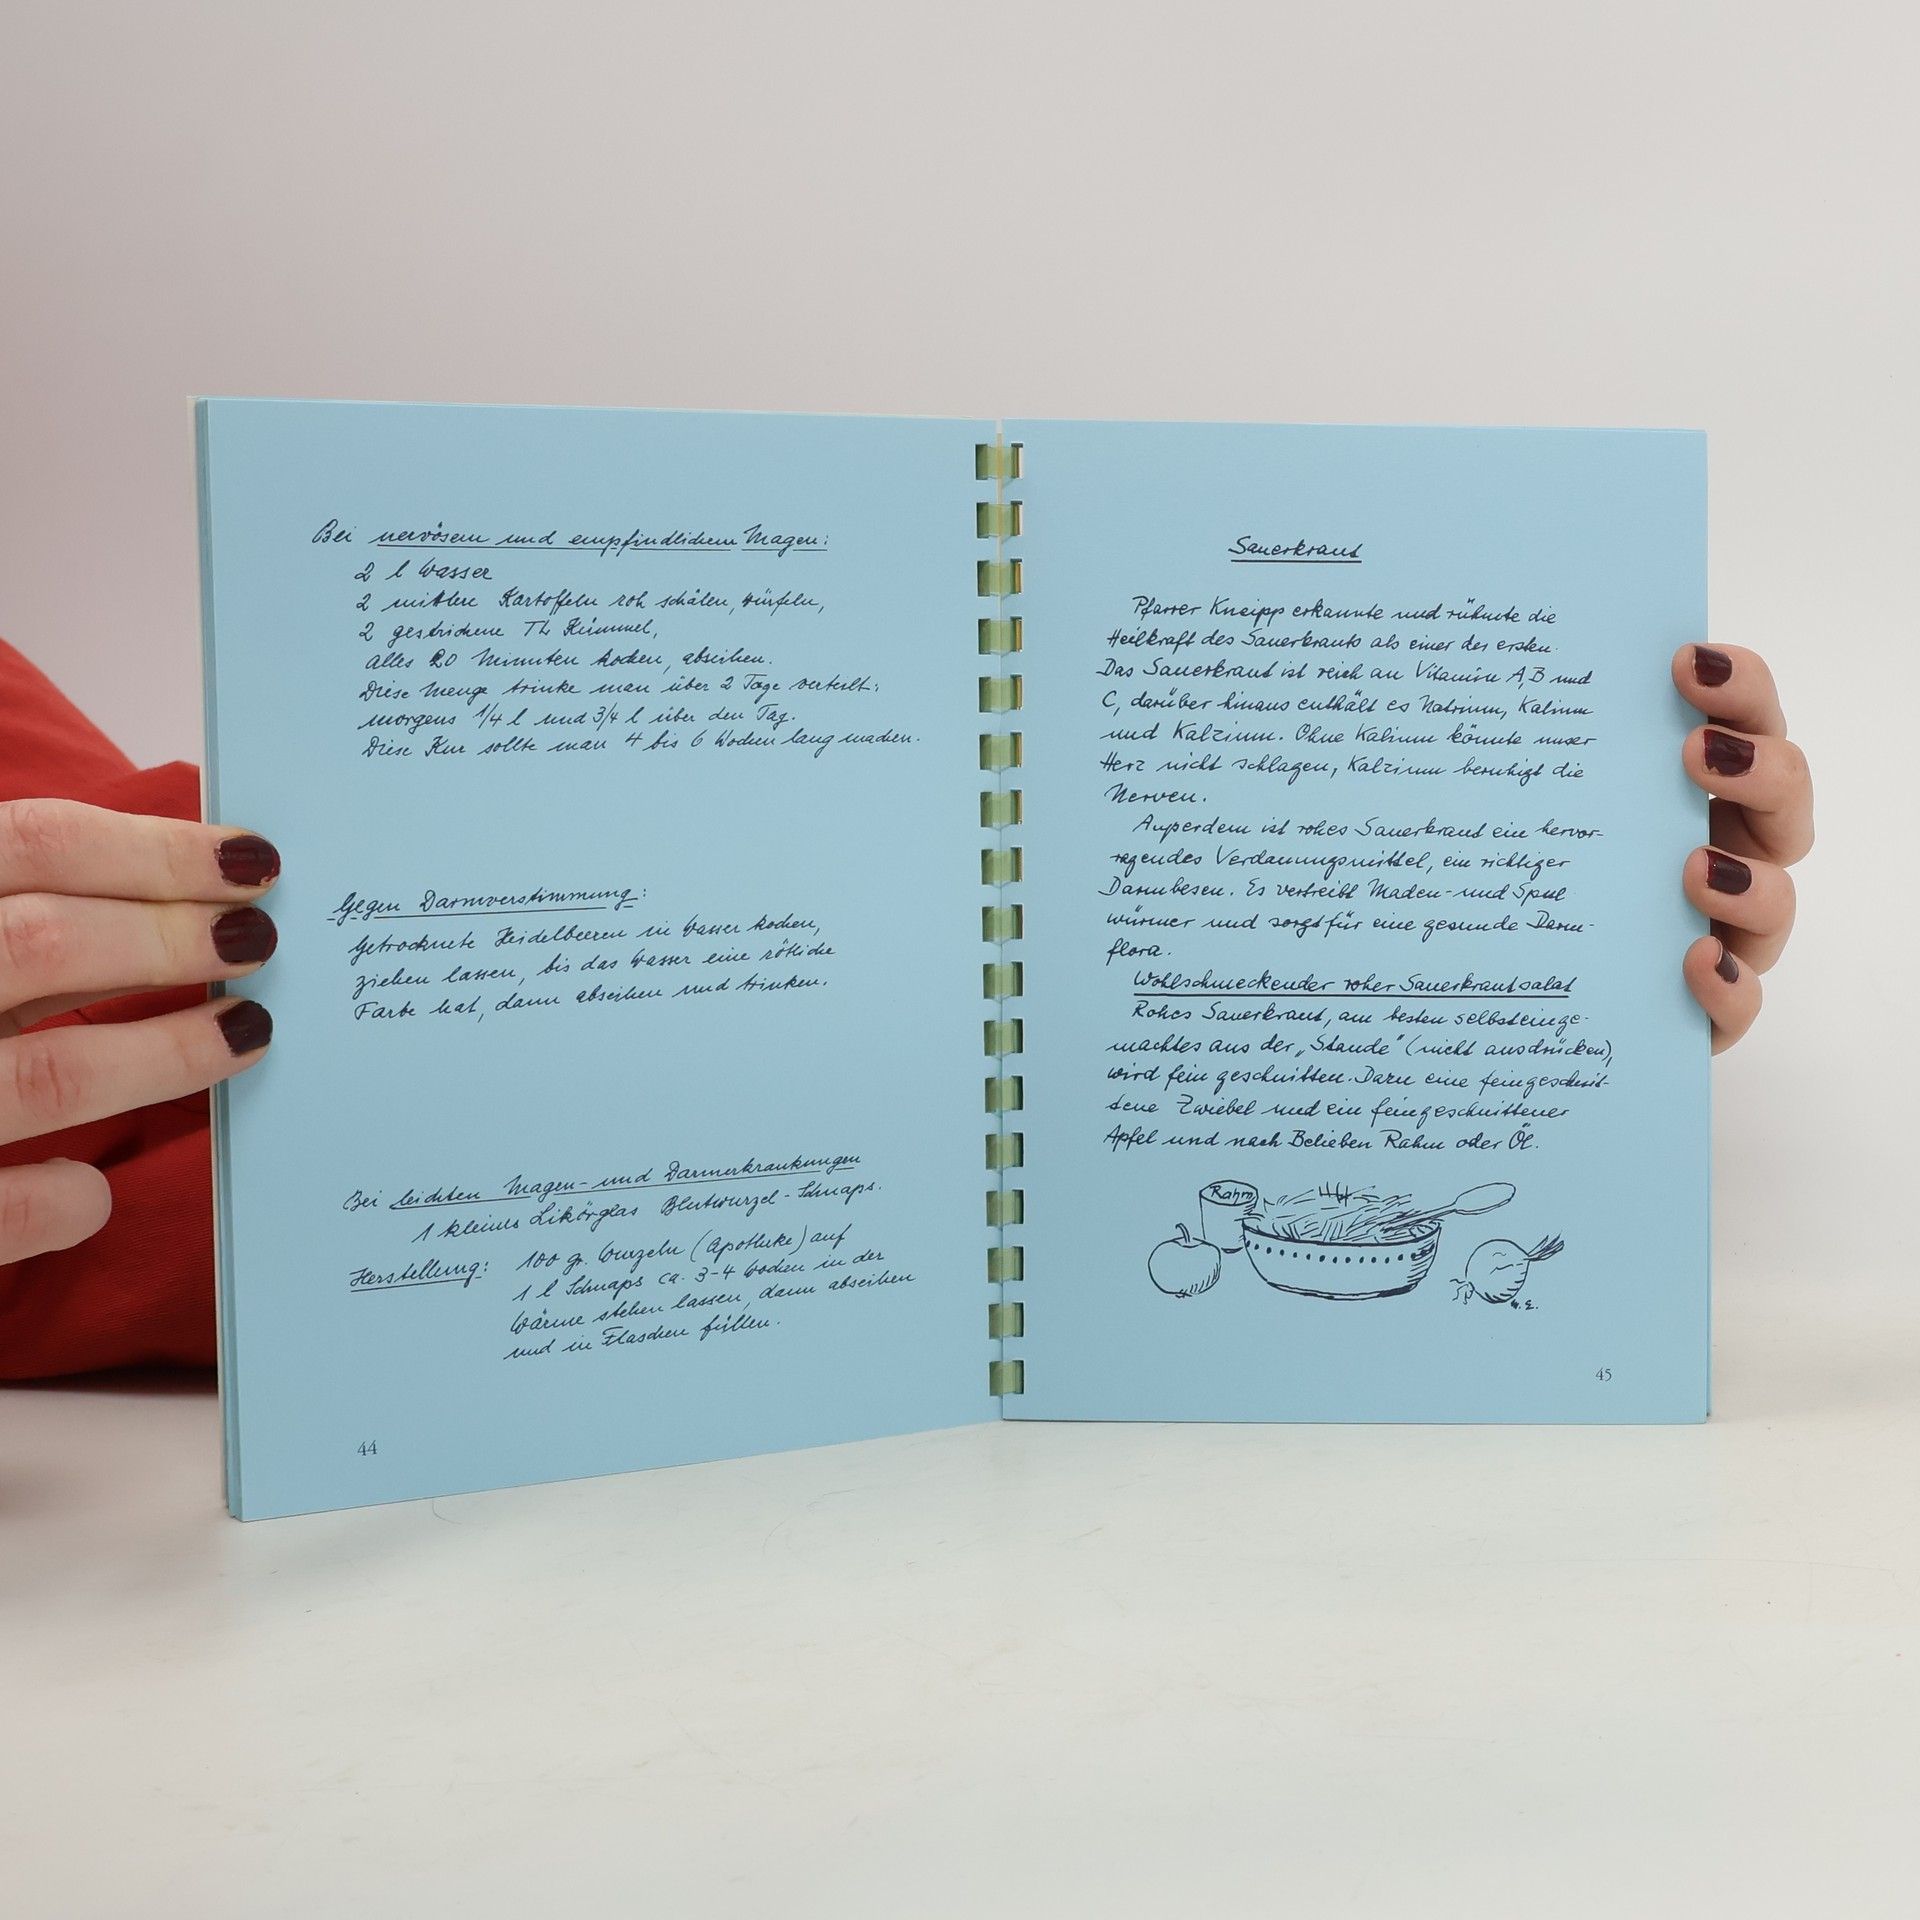 Bei nervösem und empfindlichem Magen:
2 l Wasser
2 mittlere Kartoffeln roh schälen, würfeln,
2 gestrichene TL Kümmel,
alles 20 Minuten kochen, abseihen.
Diese Menge trinke man über 2 Tage verteilt:
morgens 1/4 l und 3/4 l über den Tag.
Diese Kur sollte man 4 bis 6 Wochen lang machen.
Gegen Darmverstimmung:
Getrocknete Heidelbeeren in Wasser kochen,
ziehen lassen, bis das Wasser eine rötliche
Farbe hat, dann abseihen und trinken.
Bei leichten Magen- und Darmerkrankungen
1 kleines Likörglas Blutwurzel-Schnaps.
Herstellung: 100 gr. Wurzeln (Apotheke) auf
1 l Schnaps ca. 3-4 Wochen in der
Wärme stehen lassen, dann abseihen
und in Flaschen füllen.
44
Sauerkraut
Pfarrer Kneipp erkannte und rühmte die
Heilkraft des Sauerkrauts als einer der ersten.
Das Sauerkraut ist reich an Vitamin A, B und
C, darüber hinaus enthält es Natrium, Kalium
und Kalzium. Ohne Kalium könnte unser
Herz nicht schlagen, Kalzium beruhigt die
Nerven.
Außerdem ist rohes Sauerkraut ein hervor-
ragendes Verdauungsmittel, ein richtiger
Darmbesen. Es vertreibt Maden- und Spul
würmer und sorgt für eine gesunde Darm-
flora.
Wohlschmeckender roher Sauerkrautsalat
Rohes Sauerkraut, am besten selbsteinge-
machtes aus der „Stande" (nicht ausdrücken),
wird fein geschnitten. Dazu eine feingeschnit-
tene Zwiebel und ein feingeschnittener
Apfel und nach Belieben Rahm oder Öl.
Rahm
45